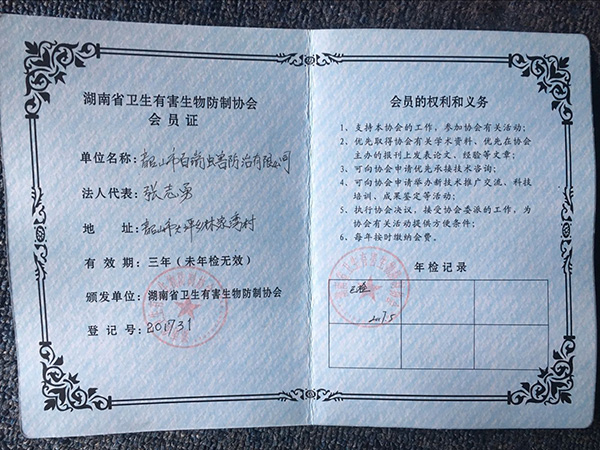 湖南省卫生有害生物防制协会
会员证
单位名称：韶山市百瑞虫害防治有限公司
法人代表：张志勇
地 址：韶山市大坪乡林家湾村
有 效 期：三年（未年检无效）
颁发单位：湖南省卫生有害生物防制协会
登 记 号：201731
会员的权利和义务
1、支持本协会的工作，参加协会有关活动；
2、优先取得协会有关学术资料、优先在协会
主办的报刊上发表论文、经验等文章；
3、可向协会申请优先承接技术咨询；
4、可向协会申请举办新技术推广交流、科技
培训、成果鉴定等活动；
5、执行协会决议，接受协会委派的工作，为
协会有关活动提供方便条件；
6、每年按时缴纳会费。
年检记录
已检
2017.5